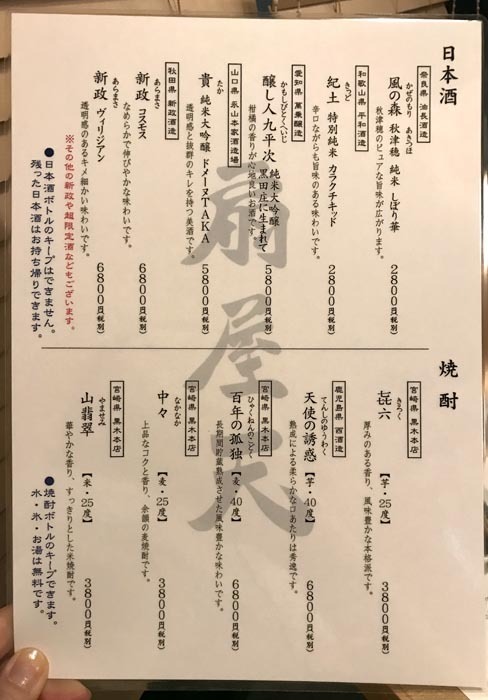 日本酒
奈良県 油長酒造
かぜのもり あきつほ
風の森 秋津穂 純米 しぼり華
秋津穂のピュアな旨味が広がります。
2800円(税別)
和歌山県 平和酒造
きっど
紀土 特別純米 カラクチキッド
辛口ながらも旨味のある味わいです。
2800円(税別)
愛知県 萬乗醸造
かもしびとくへいじ
醸し人九平次 純米大吟醸 黒田庄に生まれて
柑橘の香りが心地良いお酒です。
5800円(税別)
山口県 永山本家酒造場
たか
貴 純米大吟醸 ドメーヌTAKA
透明感と抜群のキレを持つ美酒です。
5800円(税別)
秋田県 新政酒造
あらまさ
新政 コスモス
なめらかで伸びやかな味わいです。
6800円(税別)
あらまさ
新政 ヴィリジアン
透明感のあるキメ細かい味わいです。
6800円(税別)
※その他の新政や超限定酒などもございます。
●日本酒ボトルのキープはできません。
残った日本酒はお持ち帰りできます。
扇屋大
焼酎
宮崎県 黒木本店
きろく
㐂六
【芋・25度】
厚みのある香り、風味豊かな本格派です。
3800円(税別)
鹿児島県 西酒造
てんしのゆうわく
天使の誘惑
【芋・40度】
熟成による柔らかな口あたりは秀逸です。
6800円(税別)
宮崎県 黒木本店
ひゃくねんのこどく
百年の孤独
【麦・40度】
長期間貯蔵熟成させた風味豊かな味わいです。
6800円(税別)
宮崎県 黒木本店
なかなか
中々
【麦・25度】
上品なコクと香り、余韻の麦焼酎です。
3800円(税別)
宮崎県 黒木本店
やませみ
山翡翠
【米・25度】
華やかな香り、すっきりとした米焼酎です。
3800円(税別)
●焼酎ボトルのキープできます。
水・氷・お湯は無料です。